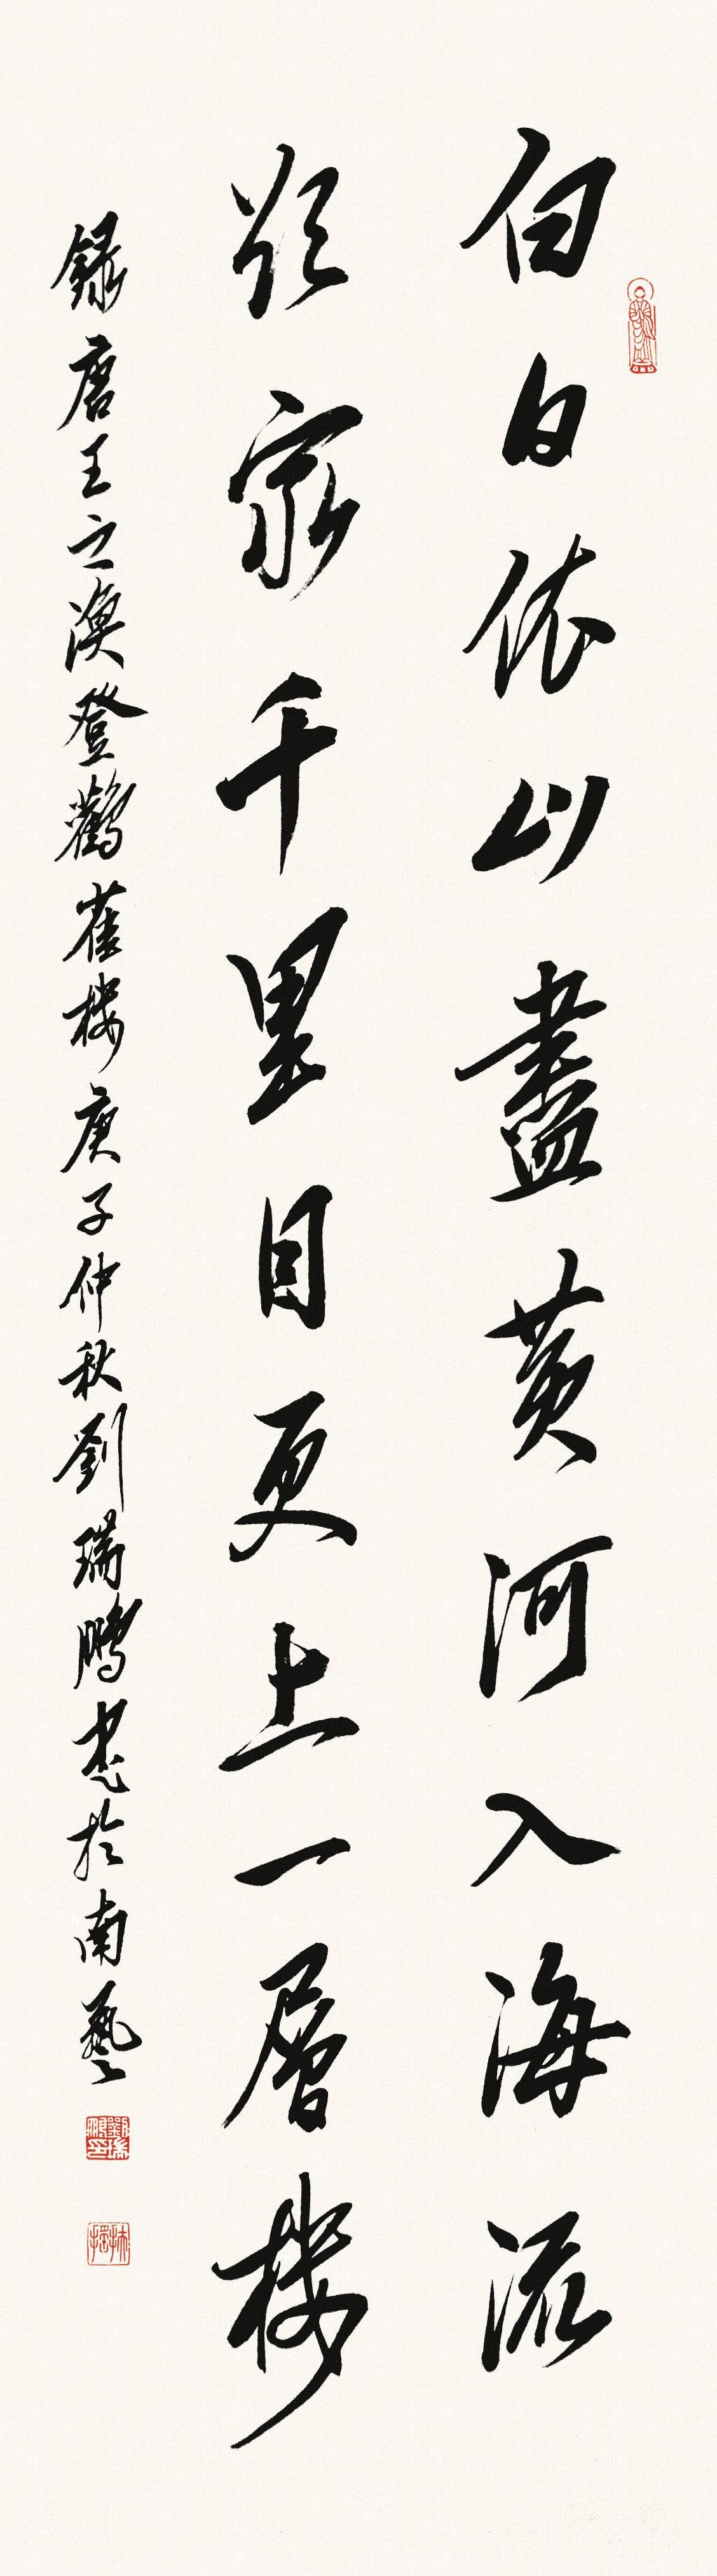 白日依山盡黃河入海流
欲窮千里目更上一層樓
錄唐王之渙登鸛雀樓庚子仲秋劉瑞鵬書於南藝
劉瑞鵬印